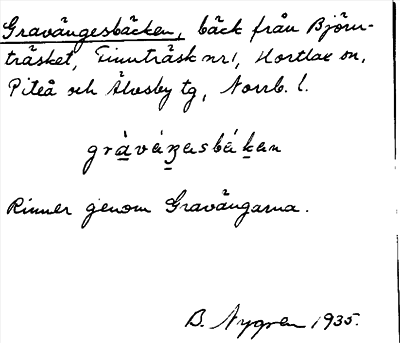 Gravängesbäcken, bäck från Björn-
träsket, Finnträsk nr 1, Hortlax sn,
Piteå och Älvsby tg, Norrb. l.
gràvä́ŋesbä́ḱen
Rinner genom Gravängarna.
B. Nygren 1935.